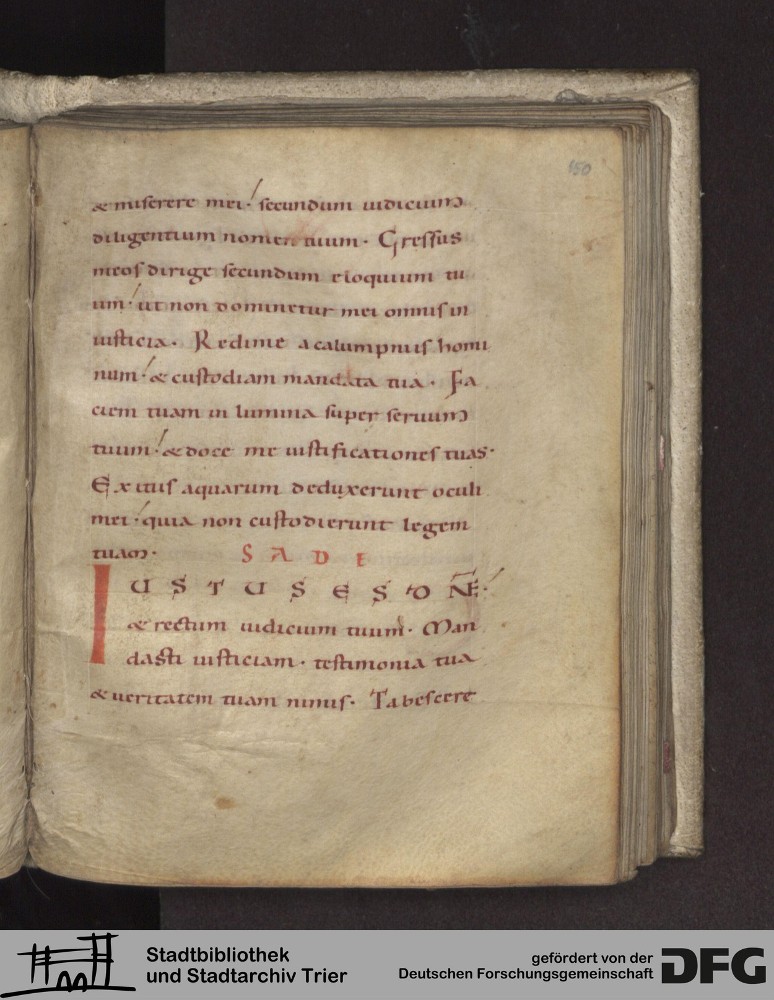 150
& miserere mei· secundum iudicium
diligentium nomen tuum· Gressus
meos dirige secundum eloquium tu
um· ut non dominetur mei omnis in
iusticia· Redime a calumpniis homi
num· & custodiam mandata tua· Fa
ciem tuam in lumina super seruum
tuum· & doce me iustificationes tuas·
Exitus aquarum deduxerunt oculi
mei· quia non custodierunt legem
tuam· SADE
IUSTUS ES DNE·
& rectum iudicium tuum· Man
dasti iusticiam· testimonia tua
& ueritatem tuam nimis· Tabescere
Stadtbibliothek
und Stadtarchiv Trier
gefördert von der
Deutschen Forschungsgemeinschaft
DFG